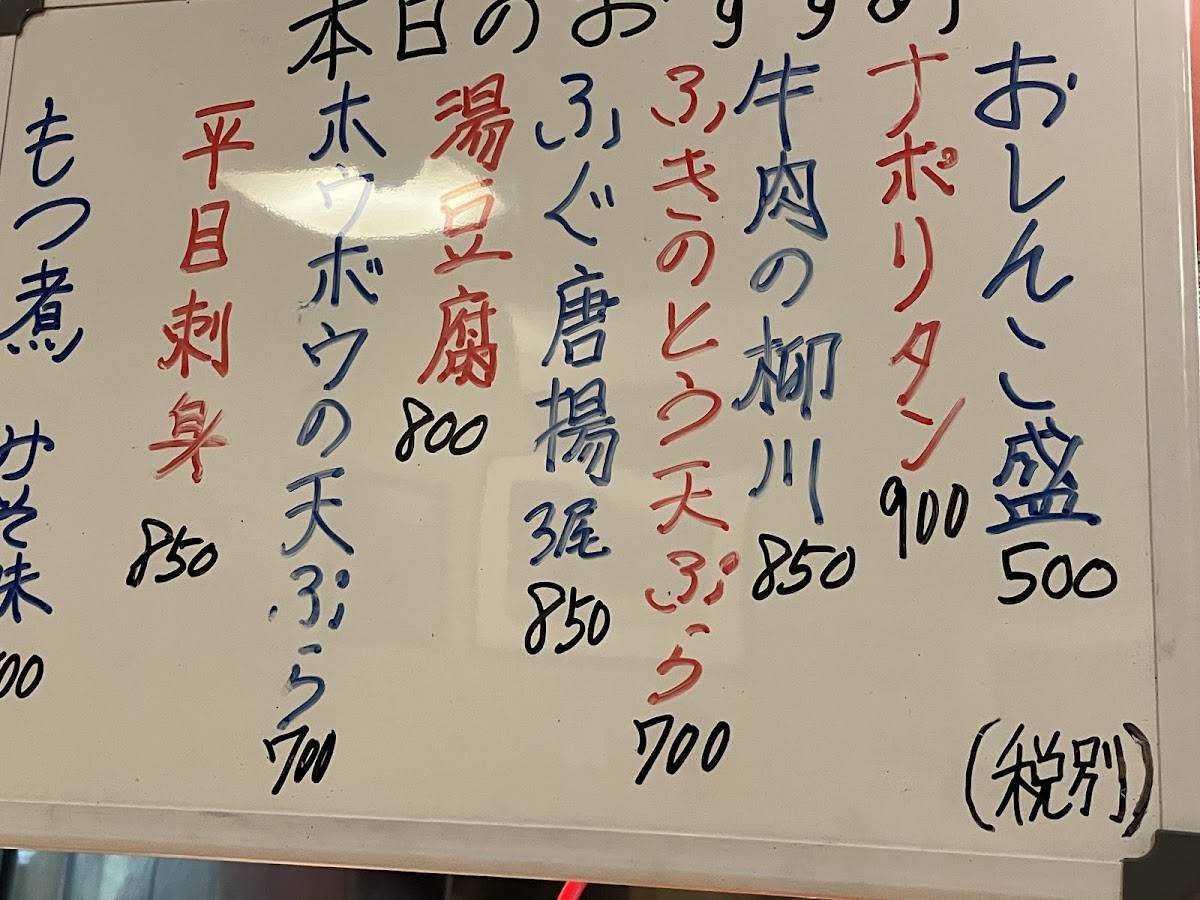 本日のおすすめ
おしんこ盛 500
ナポリタン 900
牛肉の柳川 850
ふきのとう天ぷら 700
ふぐ唐揚 3尾 850
湯豆腐 800
ホウボウの天ぷら 700
平目刺身 850
もつ煮 みそ味 00
(税別)